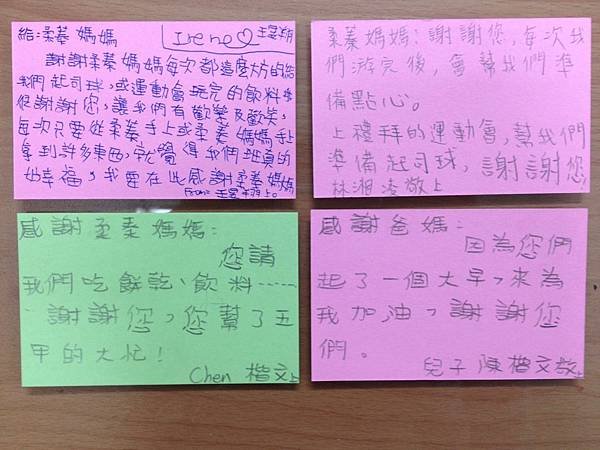 給:柔蓁 媽媽
Irene♡王昱翔
謝謝柔蓁媽媽每次都這麼方的給
我們起司球,或運動會玩完的飲料
謝謝您,讓我們有歡樂及歡笑,
每次只要從柔蓁手上或柔蓁媽媽手上
拿到許多東西,就覺得我們班真的
好幸福,我要在此感謝柔蓁媽媽
From:王昱翔上。
柔蓁媽媽:謝謝您,每次我
們游完後,會幫我們準
備點心。
上禮拜的運動會,幫我們
準備起司球,謝謝您
林湘 敬上
感謝柔蓁媽媽:
您請
我們吃餅乾、飲料……
謝謝您,您幫了五
甲的大忙!
Chen 楷文上
感謝爸媽:
因為您們
起了一個大早,來為
我加油,謝謝您
們。
兒子 陳楷文敬上